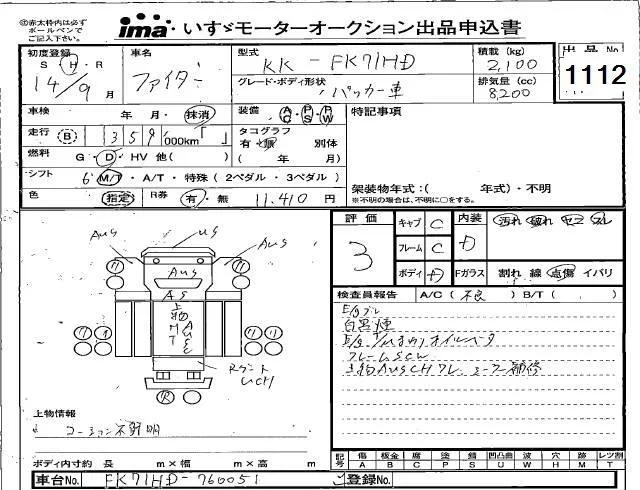 ◎赤太枠内は必ず
ボールペンで
ご記入下さい。
ima・いすゞモーターオークション出品申込書
初度登録 車名 型式 積載(kg) 出品No
S・H・R ファイター KK-FK71HD 2,100 1112
14年/9月 グレード・ボディ形状 パッカー車 排気量(cc) 8,200
車検 年・月・抹消 装備 AC・PS・PW 特記事項
走行 B 359,000km タコグラフ 有・無 別体
燃料 G・D・HV 他( ) ( 年 月)
シフト 6 M/T・A/T・特殊(2ペダル・3ペダル)
色 指定 R券 有・無 11,410円
架装物年式:( 年式)・不明
※不明の場合は、不明に○をする。
評価 3
キャブ C 内装 D 汚れ 破れ コゲ スレ
フレーム C
ボディ D Fガラス 割れ 線 点傷 イバリ
検査員報告 A/C(不良) B/T( )
E/gブレ
白黒煙
フレームSCW
AUS US AUS
AUS
AS
上物
MT
AUSC
UCH
R
上物情報
コーション不鮮明
記号 傷 板金 腐 塗 錆 凹凸曲 波 穴 跡 レツ割
A B C P S U W H M T
ボディ内寸約 長 m×幅 m×高 m
車台No. FK71HD-760051 ご登録No.